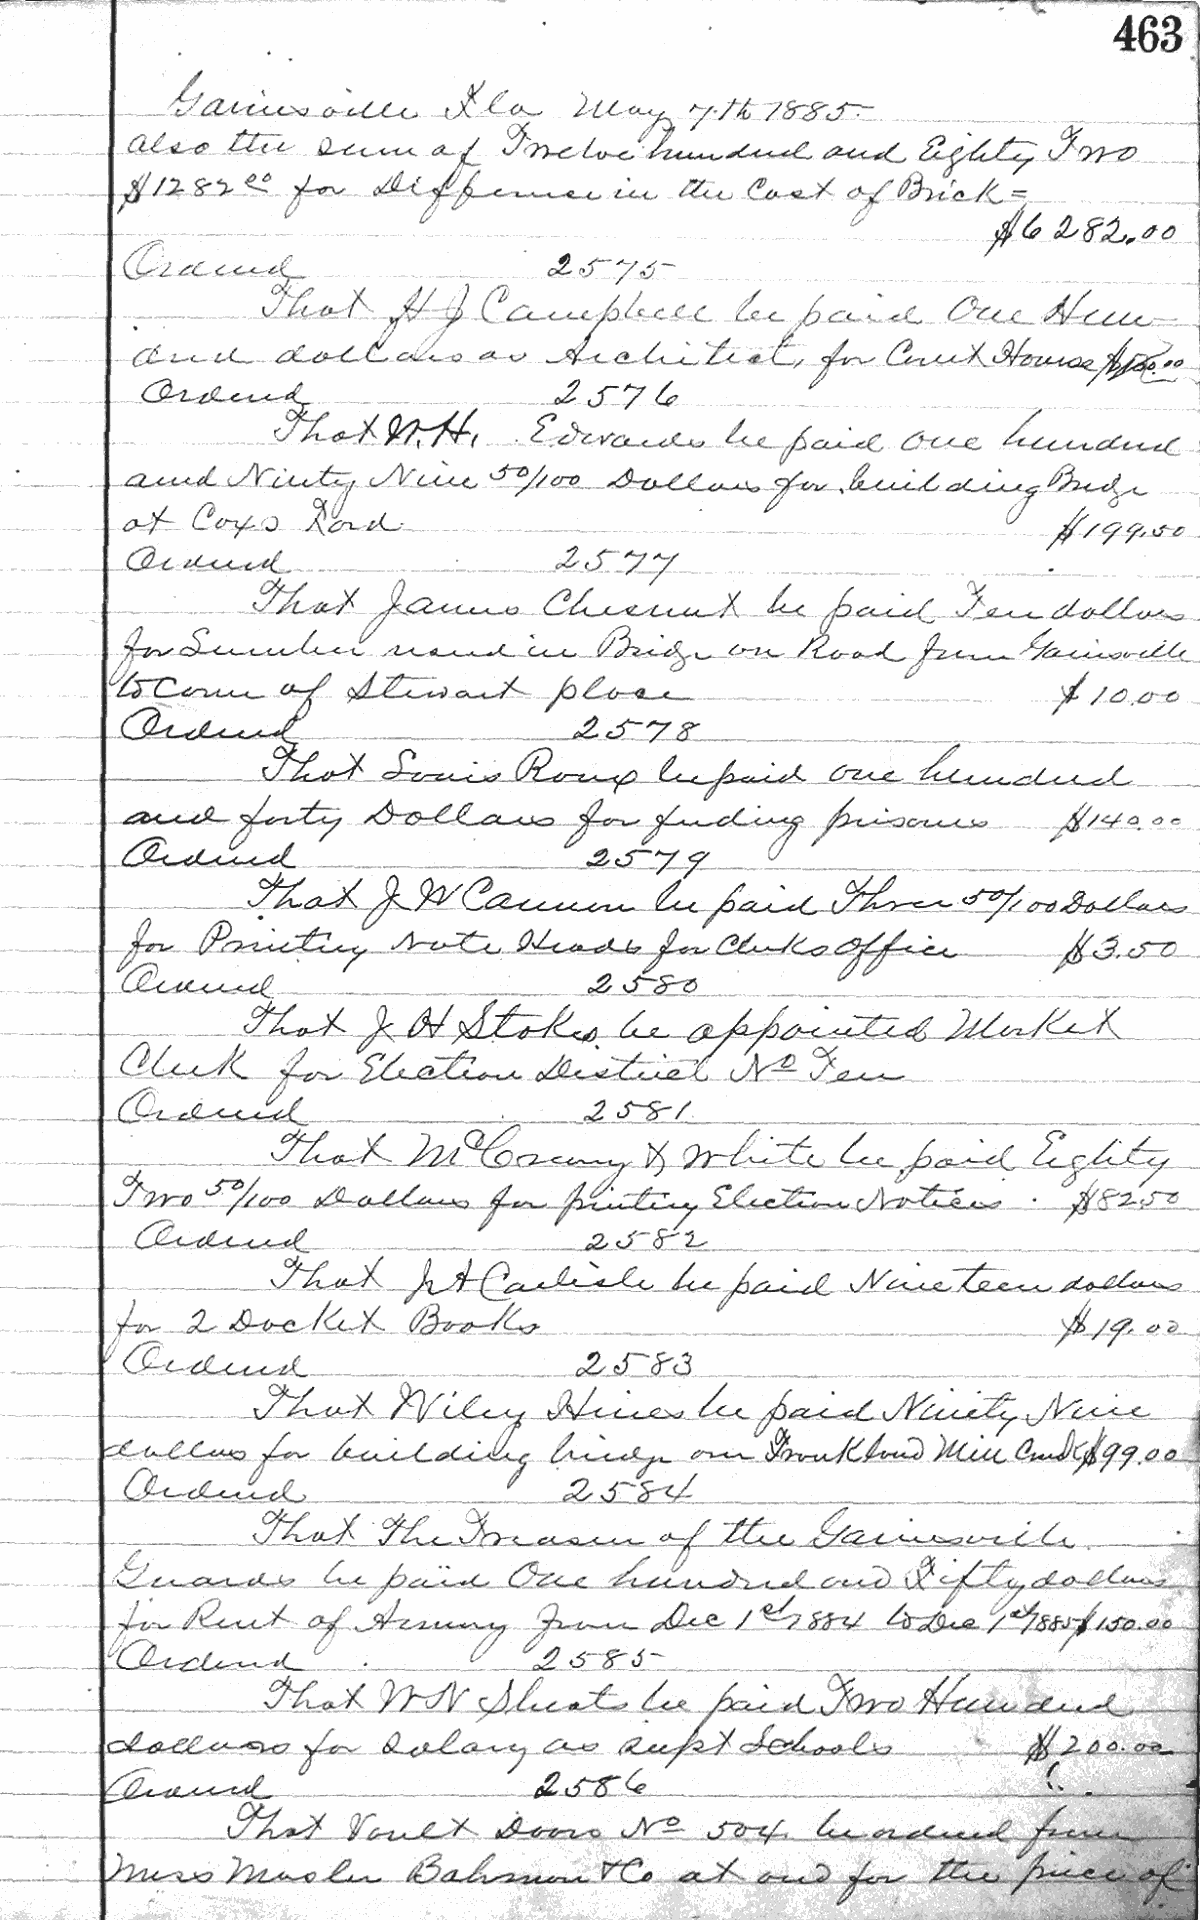 463
Gainesville Fla May 7th 1885-
also the sum of Twelve hundred and Eighty Two
$1282 00 for Difference in the Cost of Brick =
$6282.00
Ordered 2575
That H J Campbell be paid One Hun-
dred dollars as Architect, for Court House $100.00
Ordered 2576
That W.H. Edwards be paid one hundred
and Ninty Nine 50/100 Dollars for building Bridge
at Coxs Ford $199.50
Ordered 2577
That James Chesnut be paid Ten dollars
for Lumber used in Bridge on Road from Gainsville
to Corner of Stewart place $10.00
Ordered 2578
That Louis Roux be paid one hundred
and forty Dollars for feeding prisoners $140.00
Ordered 2579
That J W Cannon be paid Three 50/100 Dollars
for Printing Note Heads for Clerks office $3.50
Ordered 2580
That J H Stokes be appointed Market
Clerk for Election District No Ten
Ordered 2581
That McCreary & White be paid Eighty
Two 50/100 Dollars for printing Election Notices $82.50
Ordered 2582
That J A Carlisle be paid Nineteen dollars
for 2 Docket Books $19.00
Ordered 2583
That Wiley Hines be paid Ninety Nine
dollars for building bridge over Mill Creek $99.00
Ordered 2584
That The Treasurer of the Gainesville
Guards be paid One hundred and Fifty dollars
for Rent of Armory from Dec 1st 1884 to Dec 1st 1885 $150.00
Ordered 2585
That W N Sheats be paid Two Hundred
dollars for Salary as supt Schools $200.00
Ordered 2586
That Vault Doors No 504 be ordered from
Mess Mosler Bahman & Co at and for the price of